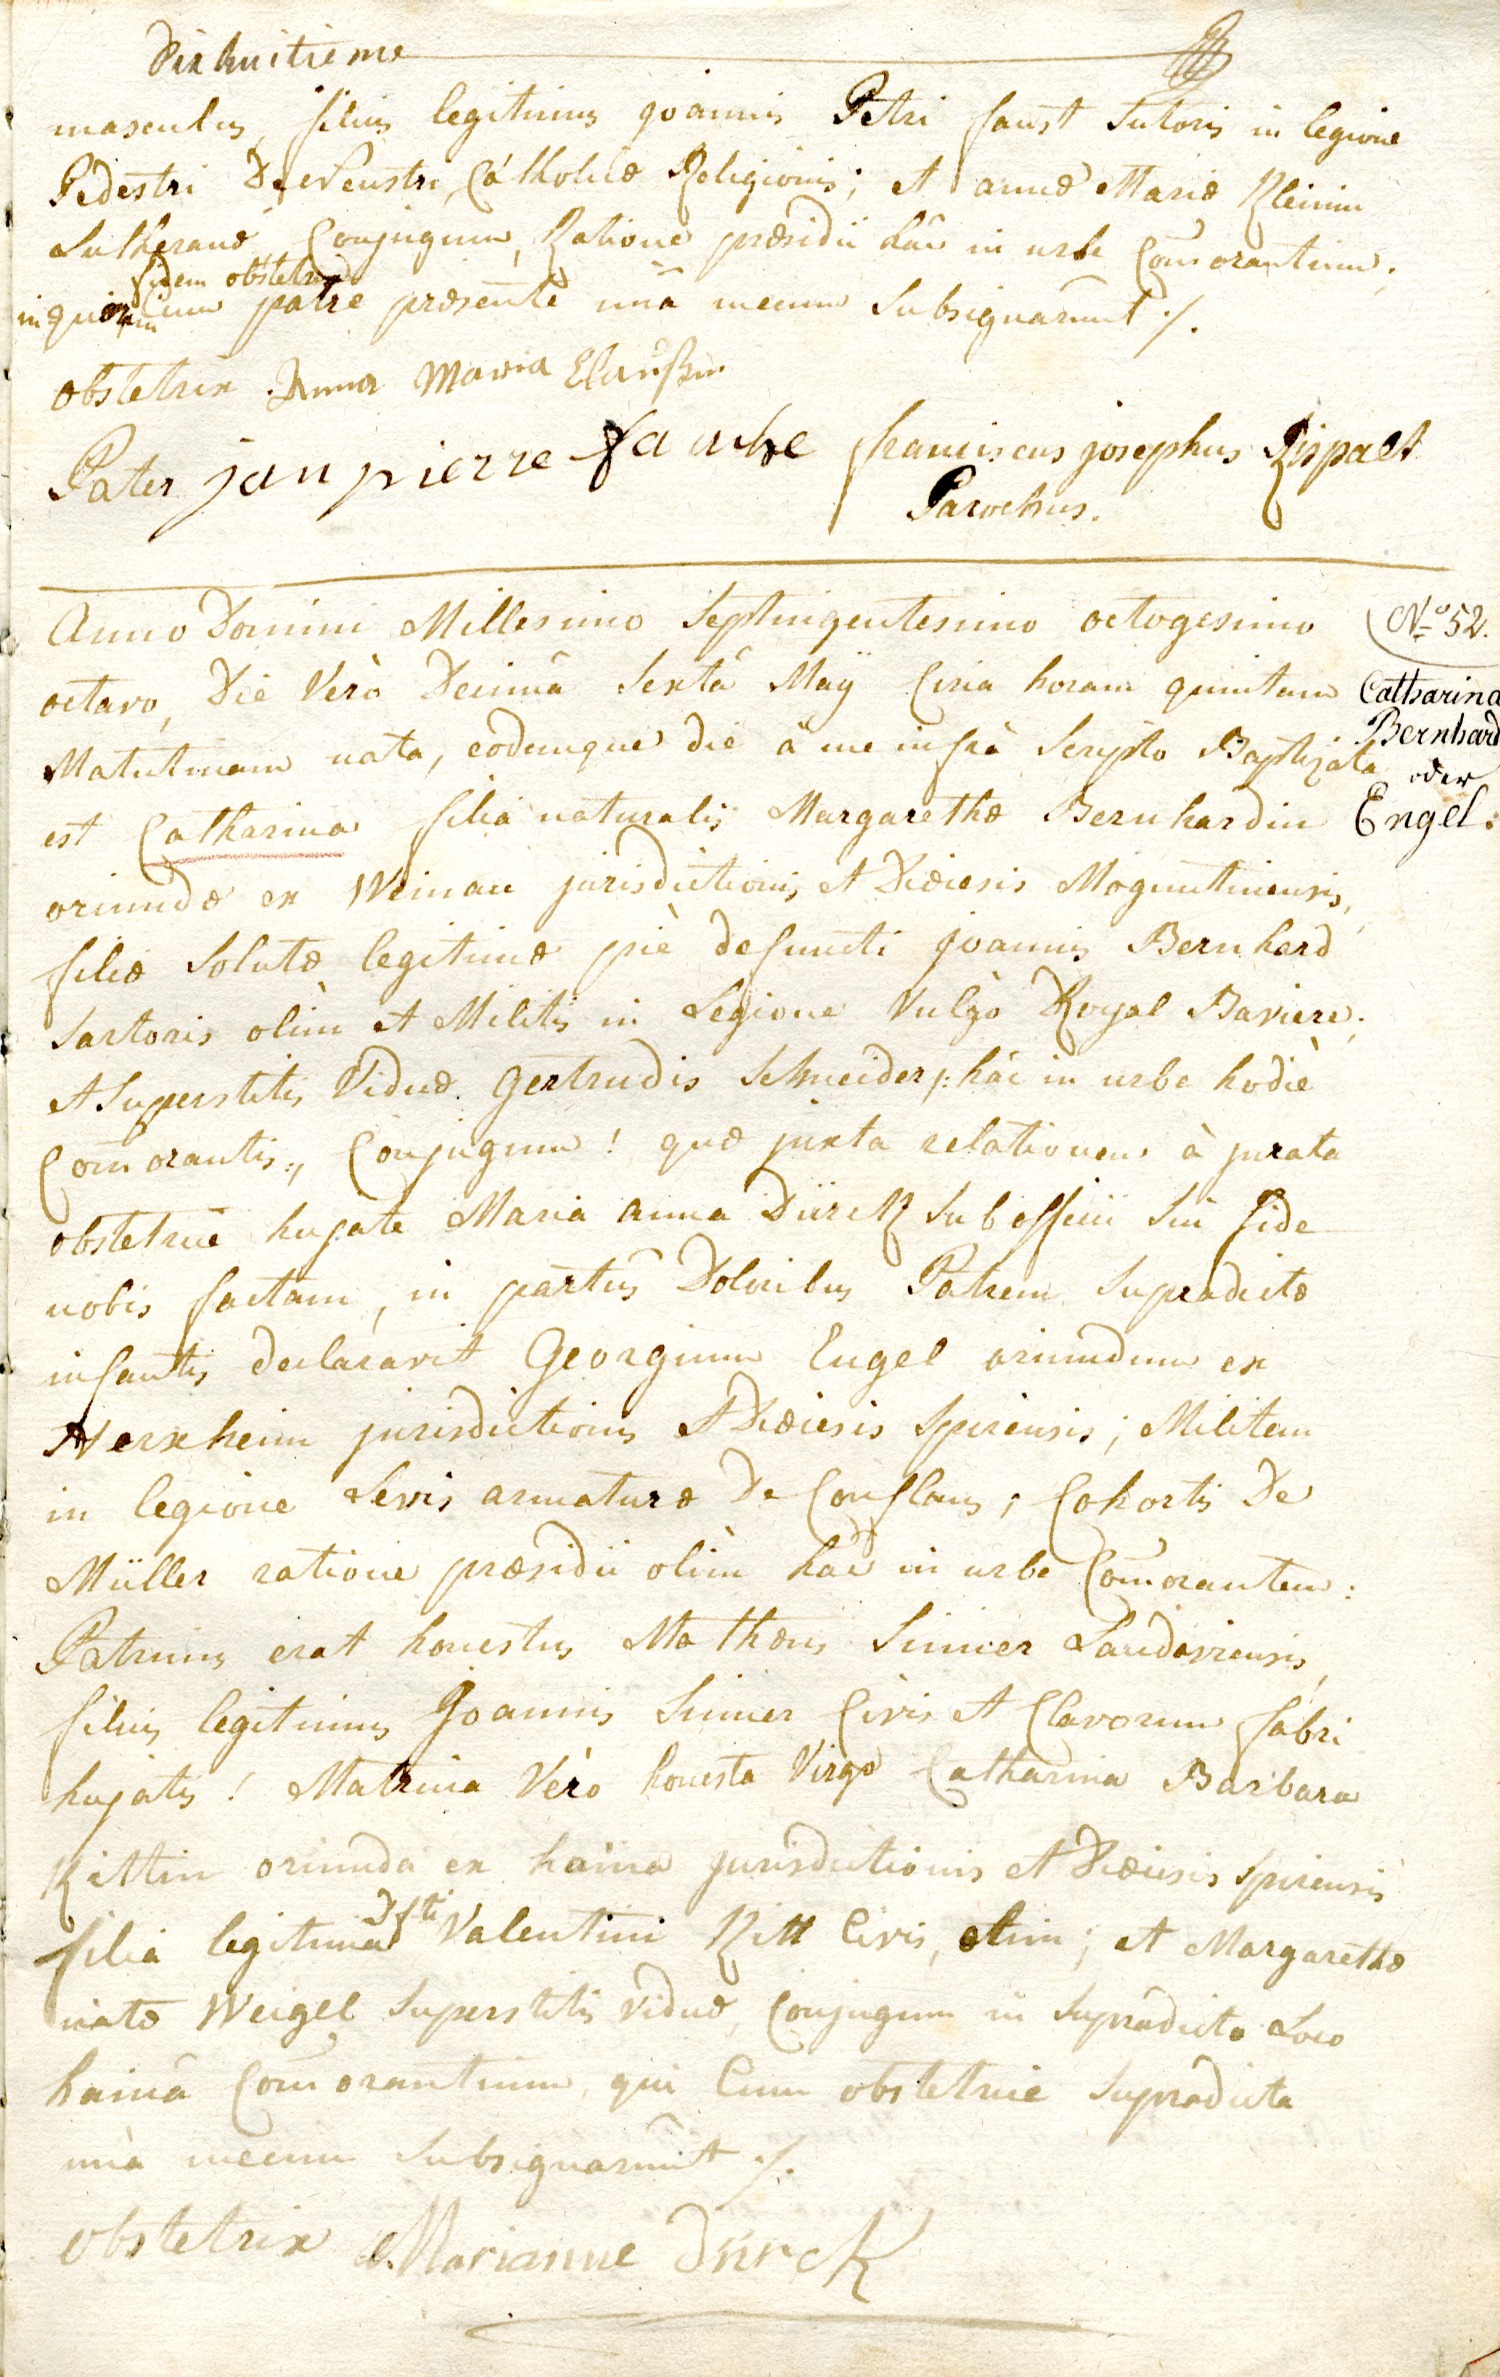 Dixhuitieme
masculus, filius legitimus Joannis Petri faust Sutoris in legione
Pedestri De Neustri, Catholicæ Religionis; et annæ Mariæ Kleinin
Lutheranæ Conjugum, Ratione præsidii hâc in urbe Com̄orantium;
fidem obstetrix
in quorum cum patre præsente unâ mecum Subsignarunt ./.
obstetrix Anna Maria
Pater jan pierre fauhe franciscus josephus Rispalt
Parochus.
Anno Domini Millesimo Septingentesimo octogesimo
No 52.
octavo, Die Verò Decimâ Sextâ Maÿ Circa horam quintam
Catharina
Bernhard
Matutinam nata, eodemque die â me infrà Scripto Baptizata
oder
est Catharina filia naturalis Margarethæ Bernhardin
Engel.
oriundæ ex Weinau jurisdictionis et Diœcesis Moguntinensis,
filiæ Solutæ legitimæ piè defuncti Joannis Bernhard
Sartoris olim et Militis in Legione Vulgò Royal Baviere;
et Superstitis Viduæ Gertrudis Schneider /: hâc in urbe hodiè
Com̄orantis :/ Conjugum! quæ juxta relationem à jurata
obstetrice hujate Maria Anna Dürck Sub officii Sui fide
nobis factam, in partûs Doloribus Patrem Supradictæ
infantis declaravit Georgium Engel oriundum ex
Herxheim jurisdictionis et Diœcesis Spirensis; Militem
in legione Levis armaturæ De Conflans; Cohortis De
Müller ratione præsidii olim hâc in urbe Com̄orantem:
Patrinus erat honestus Mathæus Simmer Landaviensis,
filius legitimus Joannis Simmer Civis et Clavorum fabri
hujatis! Matrina Verò honesta Virgo Catharina Barbara
Kittin oriunda ex haina jurisdictionis et Diœcesis Spirensis
filia legitima Dfti Valentini Kitt Civis, olim; et Margarethæ
natæ Weigel Superstitis viduæ, Conjugum in Supradicto Loco
hainâ Com̄orantium, qui Cum obstetrice Supradicta
unà mecum Subsignarunt ./.
obstetrix Marianne Dürck